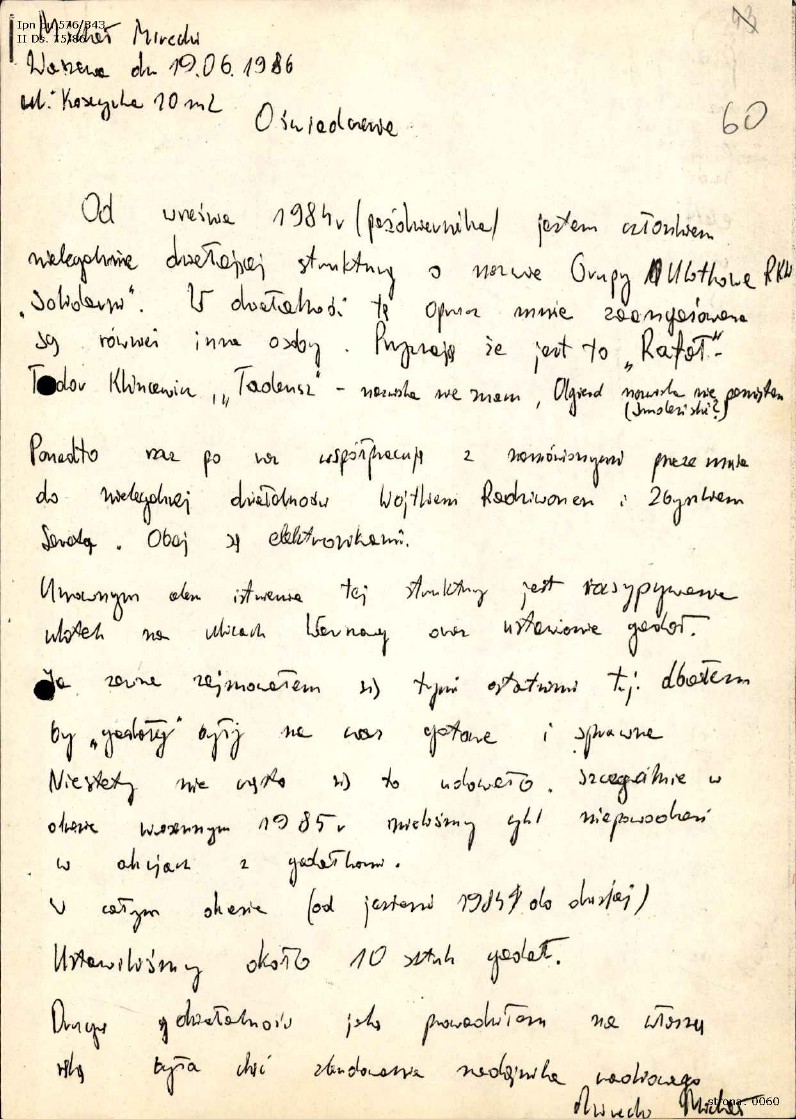 Ipn bu 576/343
II Ds. 75/86
Michał Mirecki
Warszawa dn 19.06.1986
ul. Koszycka 10 m 2
Oświadczenie
60
Od września 1984 r (października) jestem członkiem
nielegalnie działającej struktury o nazwie Grupy Ulotkowe RKW
„Solidarność”. W działalność tę oprócz mnie zaangażowane
są również inne osoby. Przyznaję że jest to „Rafał” -
Teodor Klincewicz, „Tadeusz” - nazwiska nie znam, Olgierd nazwiska nie pamiętam
(Smoleński?)
Ponadto raz po raz współpracuję z namówionymi przeze mnie
do nielegalnej działalności Wojtkiem Radziwonem i Zbyszkiem
Obaj są elektronikami.
celem istnienia tej struktury jest rozsypywanie
ulotek na ulicach Warszawy oraz ustawianie gadał.
Ja zawsze zajmowałem się tymi ostatnimi tj. dbałem
by „gadały” były na czas gotowe i sprawne
Niestety nie często się to udawało. Szczególnie w
okresie wiosennym 1985 r mieliśmy cykl niepowodzeń
w akcjach z gadałkami.
W całym okresie (od jesieni 1984 do dzisiaj)
Ustawiliśmy około 10 sztuk gadał.
Drugą działalnością jaką prowadziłem na własną
rękę była chęć zbudowania nadajnika radiowego
Mirecki Michał
strona: 0060